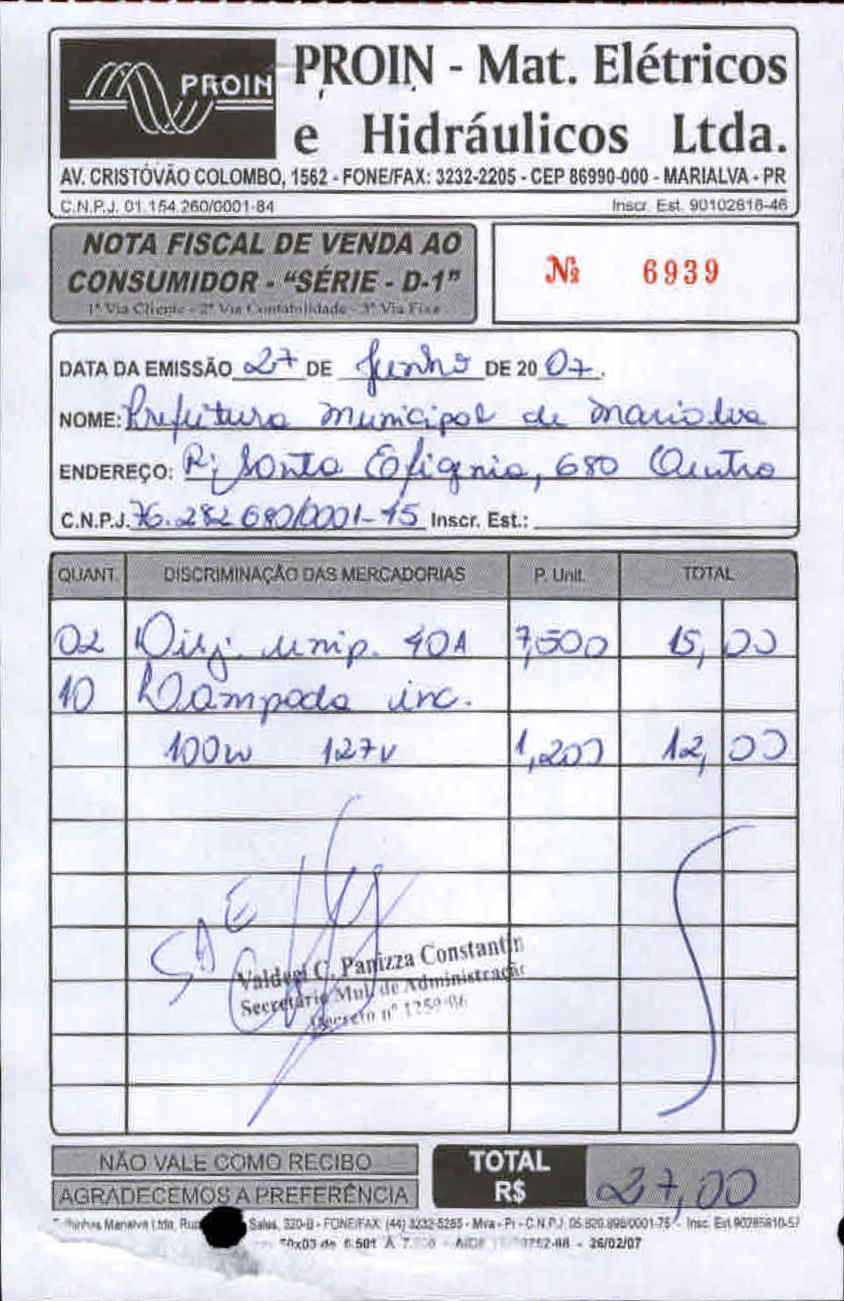 PROIN
PROIN - Mat. Elétricos
e Hidráulicos Ltda.
AV. CRISTÓVÃO COLOMBO, 1562 - FONE/FAX: 3232-2205 - CEP 86990-000 - MARIALVA - PR
C.N.P.J. 01.154.260/0001-84 Inscr. Est. 90102818-46
NOTA FISCAL DE VENDA AO
CONSUMIDOR - “SÉRIE - D-1”
1ª Via Cliente - 2ª Via Contabilidade - 3ª Via Fixa
Nº 6939
DATA DA EMISSÃO 27 DE Junho DE 2007.
NOME: Prefeitura Municipal de Marialva
ENDEREÇO: R: Santa Efigenia, 680 Centro
C.N.P.J. 76.282.680/0001-45 Inscr. Est.:
QUANT. DISCRIMINAÇÃO DAS MERCADORIAS P. Unit. TOTAL
02 Disj. unip. 40A 7,500 15,00
10 Lampada inc.
100w 127v 1,200 12,00
SAE
Valdeci C. Panizza Constantin
Secretário Mul. de Administração
Decreto nº 1259/06
NÃO VALE COMO RECIBO
AGRADECEMOS A PREFERÊNCIA
TOTAL
R$ 27,00
Marialva Ltda, Rua Salus, 320-B - FONE/FAX: (44) 3232-5265 - Mva - Pr - C.N.P.J. 05.820.898/0001-75 - Insc. Est.
50x03 de 6.501 A - AIDF - 26/02/07